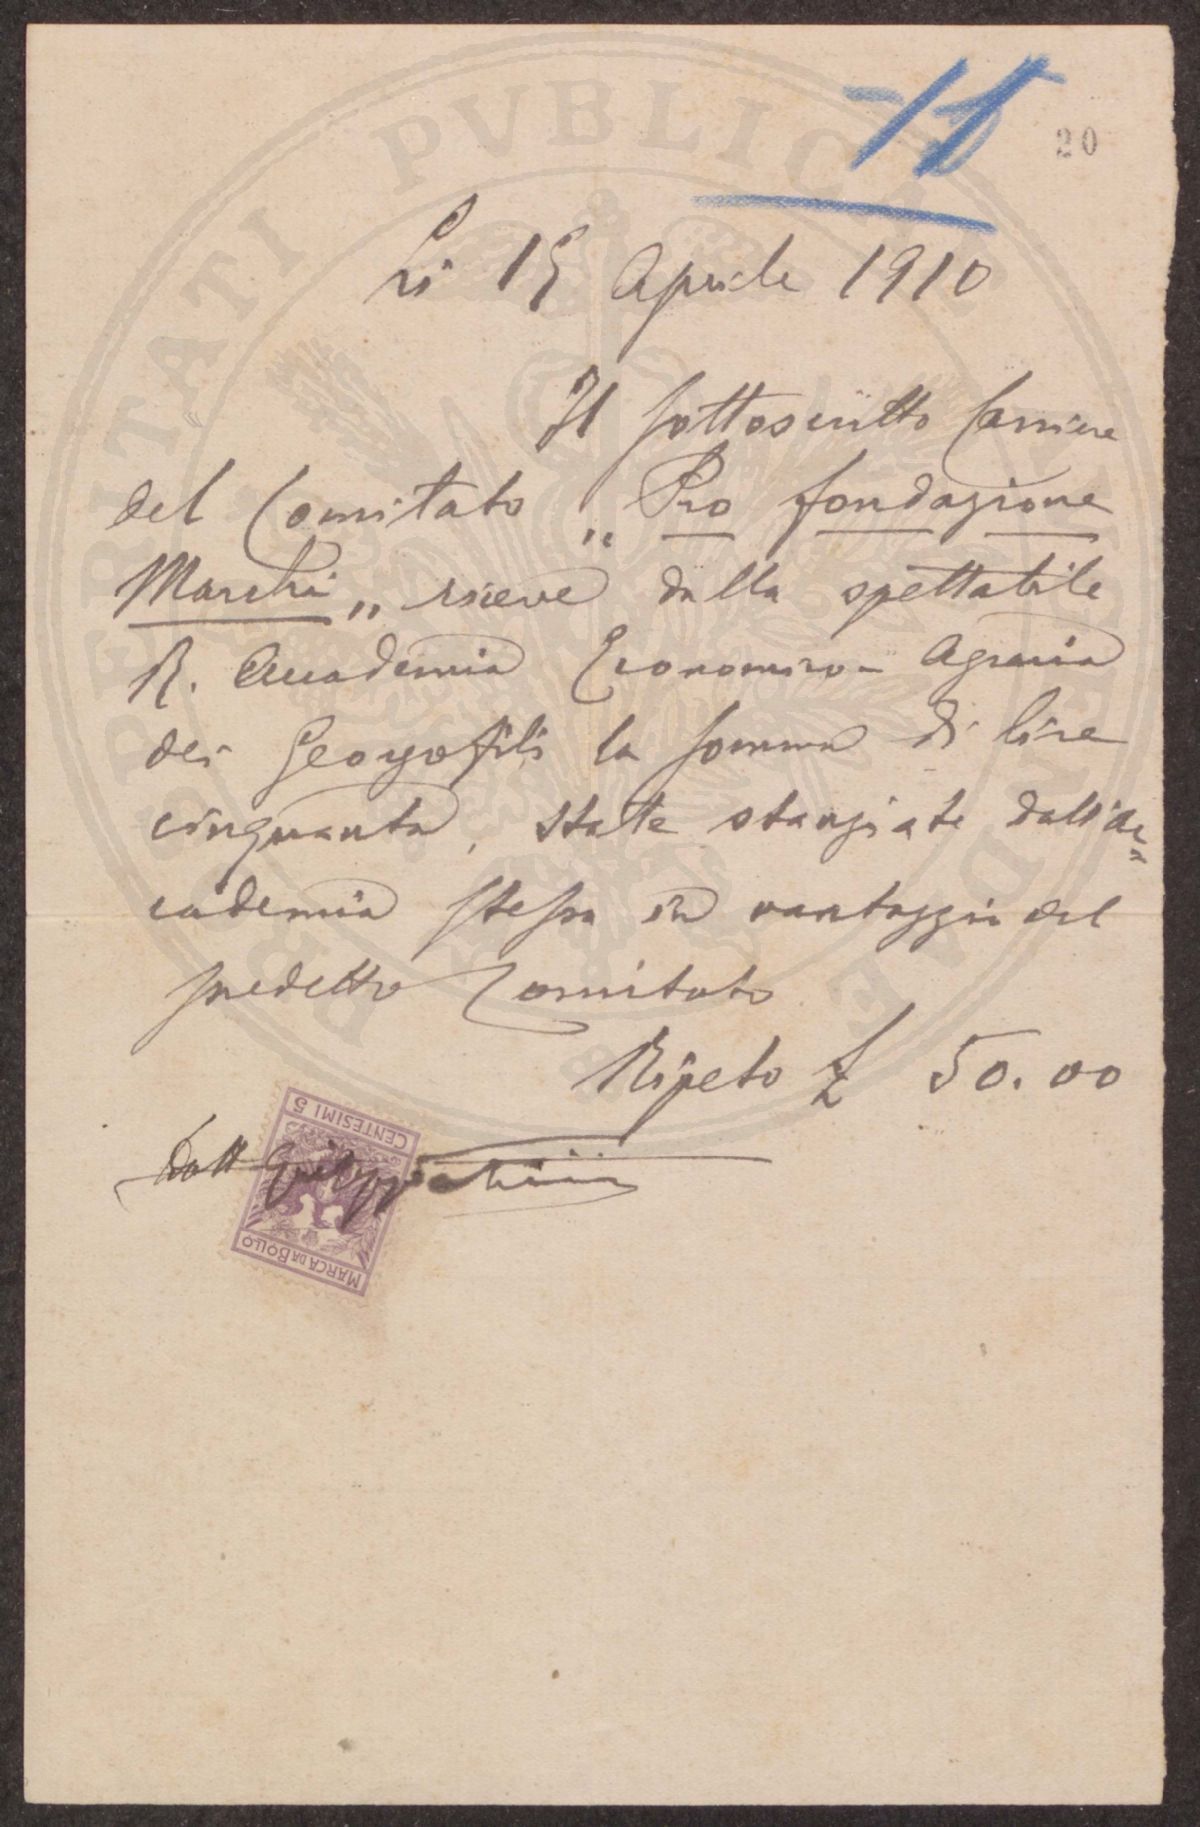 20
Li 15 Aprile 1910
Il sottoscritto Cassiere
del Comitato „ Pro fondazione
Marchi „ riceve dalla spettabile
R. Accademia Economico-Agraria
dei Georgofili la somma di lire
cinquanta, state stanziate dall'Ac=
cademia stessa in vantaggio del
predetto Comitato
Ripeto £ 50.00
Dott
CENTESIMI 5
MARCA DA BOLLO
PROSPERITATI PUBLICAE AUGENDAE